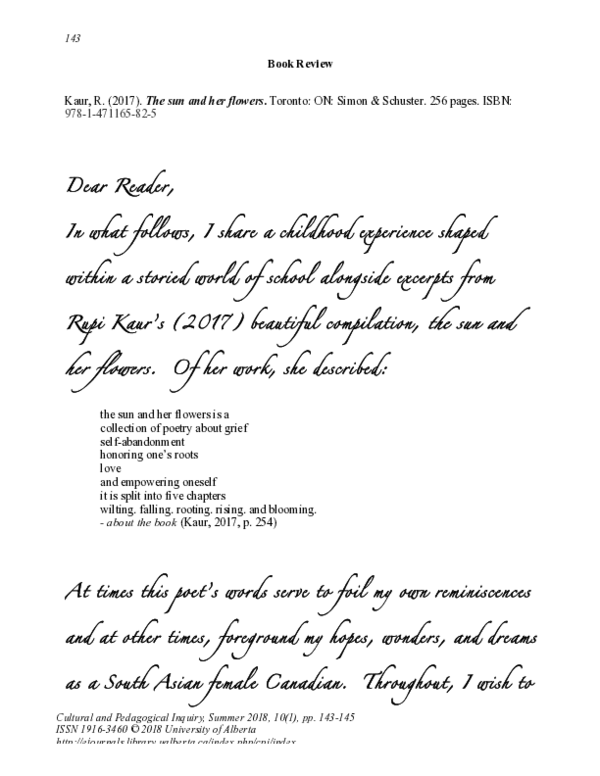 143
Book Review
Kaur, R. (2017). The sun and her flowers. Toronto: ON: Simon & Schuster. 256 pages. ISBN:
978-1-471165-82-5
Dear Reader,
In what follows, I share a childhood experience shaped
within a storied world of school alongside excerpts from
Rupi Kaur's (2017) beautiful compilation, the sun and
her flowers.  Of her work, she described:
the sun and her flowers is a
collection of poetry about grief
self-abandonment
honoring one's roots
love
and empowering oneself
it is split into five chapters
wilting. falling. rooting. rising. and blooming.
- about the book (Kaur, 2017, p. 254)
At times this poet's words serve to foil my own reminiscences
and at other times, foreground my hopes, wonders, and dreams
as a South Asian female Canadian.  Throughout, I wish to
Cultural and Pedagogical Inquiry, Summer 2018, 10(1), pp. 143-145
ISSN 1916-3460 © 2018 University of Alberta
http://ejournals.library.ualberta.ca/index.php/cpi/index